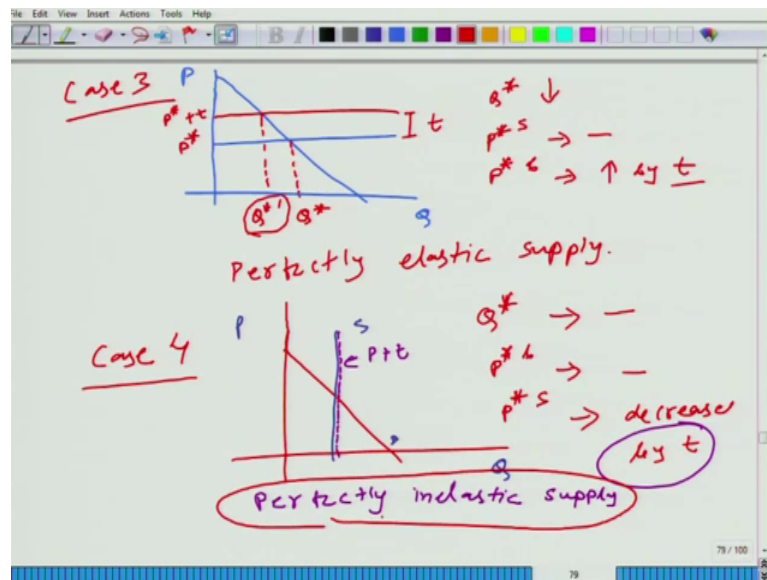 File Edit View Insert Actions Tools Help
Case 3
P
P*+t
P*
t
Q*' Q*
Q
Q* ↓
P*s → —
P*b → ↑ by t
Perfectly elastic supply.
Case 4
P
S
P+t
Q
Q* → —
P*b → —
P*s → decrease
by t
Perfectly inelastic supply
79 / 100
79